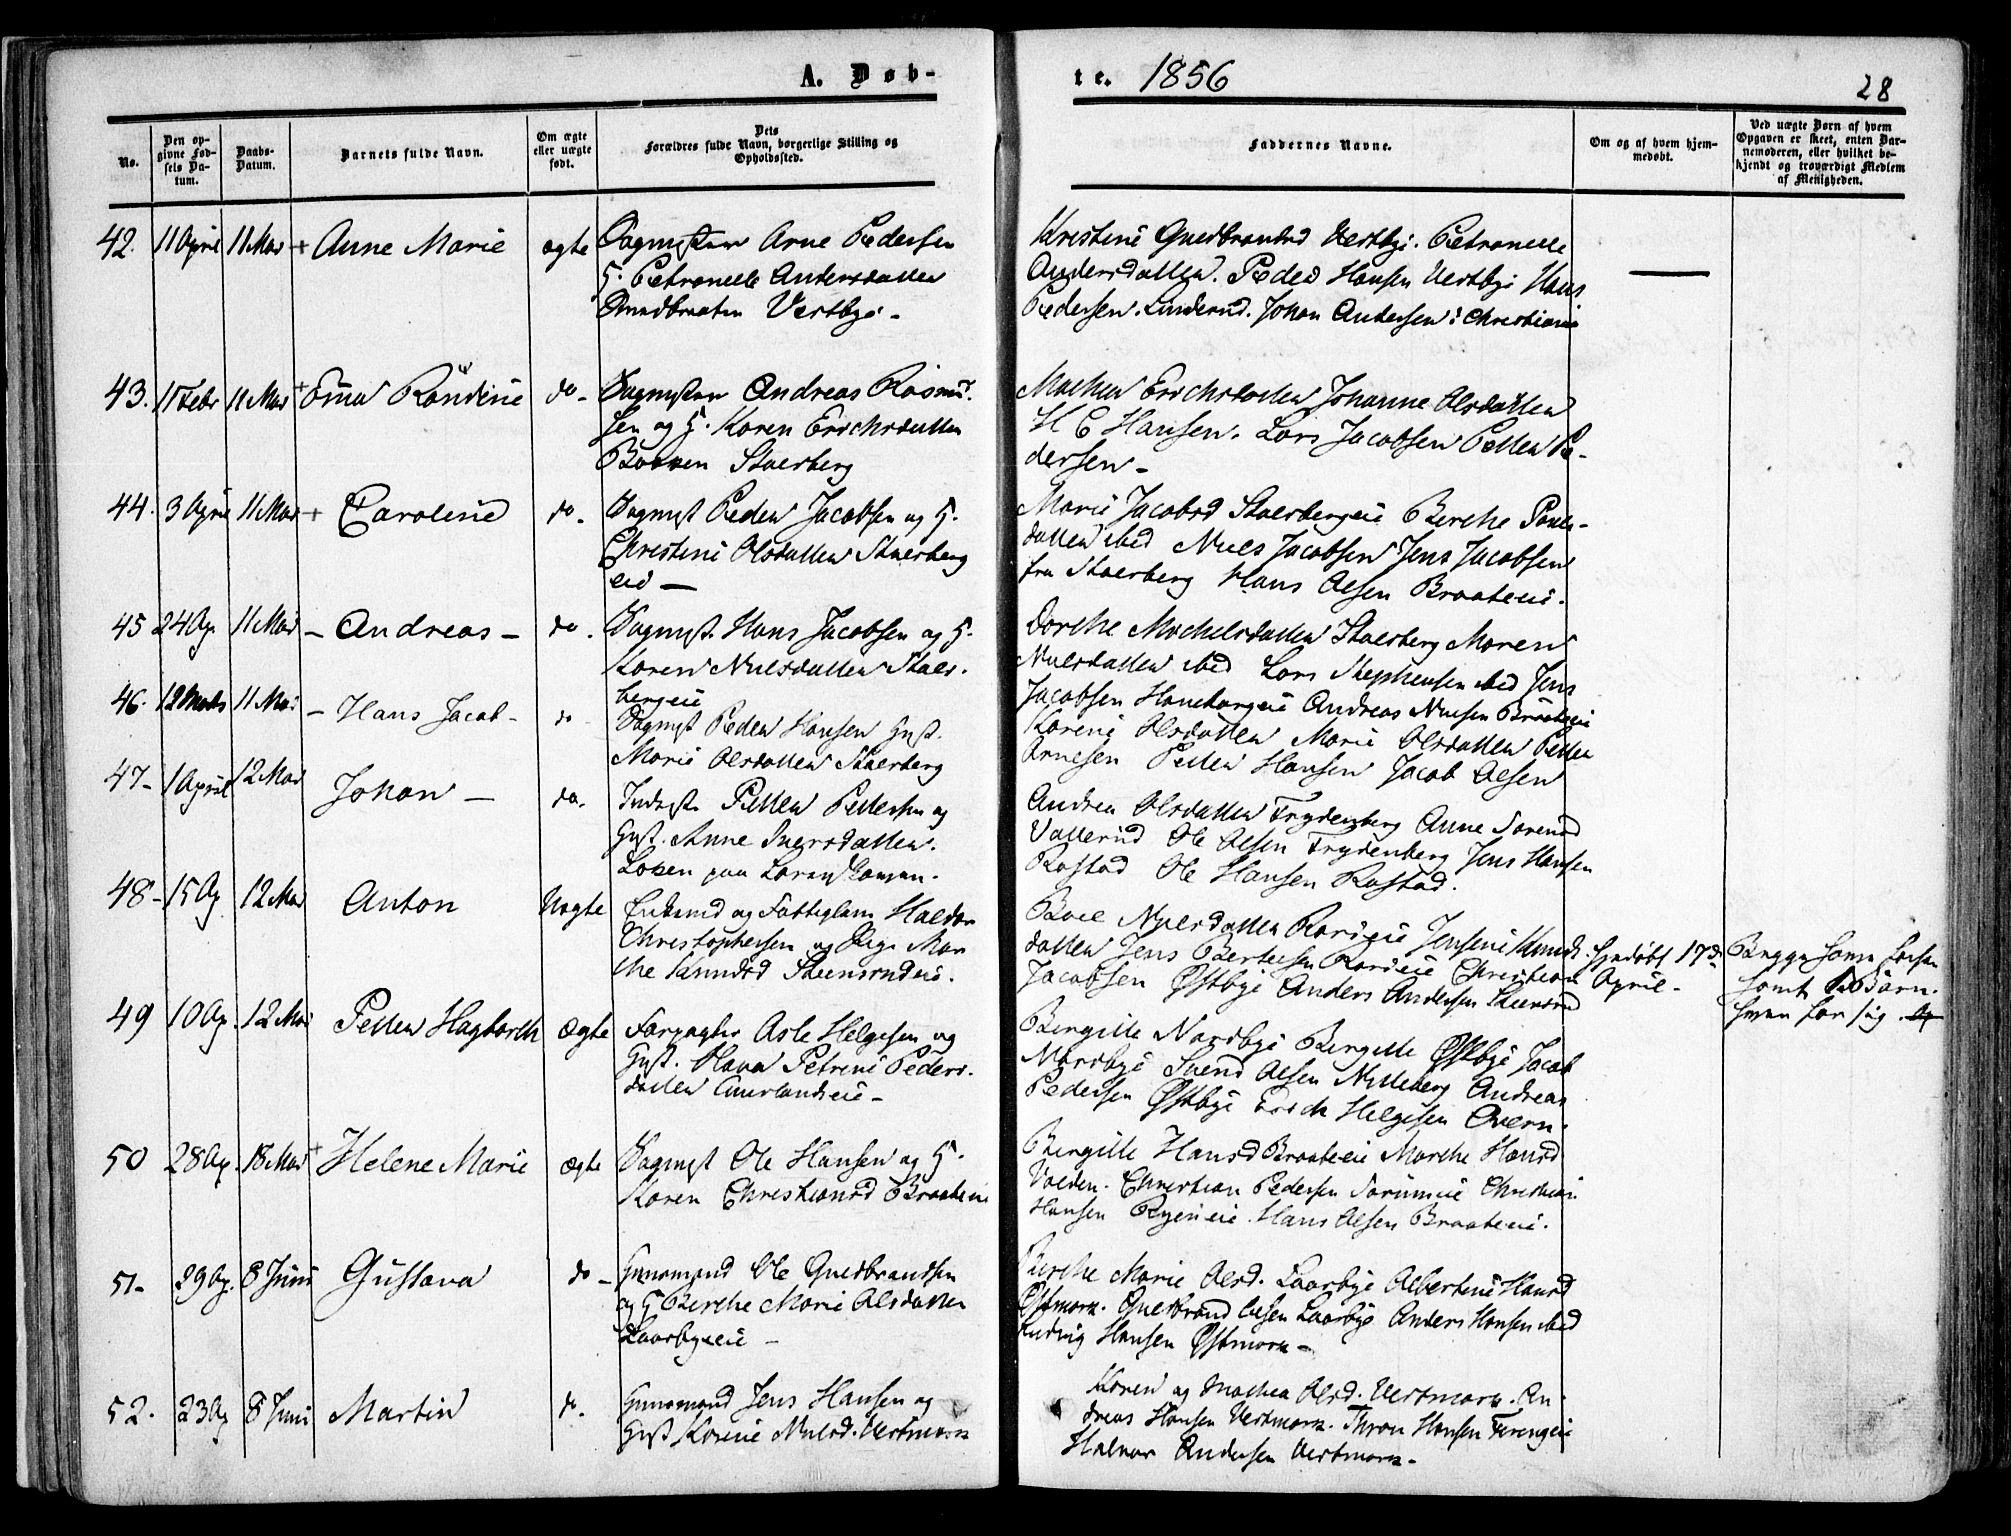 A. Døb-
te. 1856
28
No.
Den opgivne Fødsels Datum.
Daabs-Datum.
Barnets fulde Navn.
Om ægte eller uægte født.
Dets Forældres fulde Navn, borgerlige Stilling og Opholdssted.
Faddernes Navne.
Om og af hvem hjemmedøbt.
Ved uægte Børn af hvem Opgaven er skeet, enten Barnemoderen, eller hvilket bekjendt og troværdigt Medlem af Menigheden.
42. 11 April 11 Mai + Anne Marie ægte Dagmstr Arne Pedersen
Petronelle Andersdatter
Vestbye -
Kristine Guldbrandsd Vestbye. Petronelle
Andersdatter. Peder Hansen Vestbye Hans
Pedersen Linderud. Johan Andersen i Christiania
43. 11 Febr 11 Mai + Ema Randine do - Andreas Rasmus-
sen og H. Karen Erichsdatter
Staerberg
Mathea Erichsdatter Johanne Olsdatter
H E Hansen. Lars Jacobsen Petter Pe-
dersen -
44. 3 April 11 Mai + Caroline do - Dagmst Peder Jacobsen og H.
Christine Olsdatter Staerberg
eie -
Marie Jacobsd Staerbergeie Berthe Pouls-
datter ibid Niels Jacobsen Jens Jacobsen
fra Staerberg Hans Olsen Braateeie.
45 24 Ap 11 Mai - Andreas - do - Dagmst. Hans Jacobsen og H.
Karen Nielsdatter Staer-
bergeie
Dorthe Michelsdatter Staerberg Maren
Nielsdatter ibid Lars Stephensen ibid Jens
Jacobsen Andreas Nielsen Braateeie
46. 12 Marts 11 Mai - Hans Jacob - do - Dagmst Peder Hansen Hust.
Marie Olsdatter Staerberg
Karine Olsdatter Marie Olsdatter Petter
Arnesen Petter Hansen Jacob Olsen
47 - 1 April 12 Mai Johan - do. Inderst Petter Pettersen og
Hust. Anne Iversdatter.
Løken paa
Andrea Olsdatter Frydenberg Anne Sorensd
Vallerud Ole Olsen Frydenberg Jens Hansen
Rostad Ole Hansen Rostad.
48 - 15 Ap 12 Mai Anton Uægte Enkemd og Fattiglem Haldor
Christophersen og Pige Mar
the Knudsd Steensrudeie.
Boel Nielsdatter Jensine Knuds-
datter Jens Bertelsen Christian
Jacobsen Østbye Anders Andersen Steensrud
Hjdøbt 17de
April -
49 10 Ap. 12 Mai Petter Hagbarth Ægte Forpagter Asle Helgesen og
Hust. Petrine Peders-
datter
Bergitte Nordbye Bergitte Østbye Jacob
Nordbye Svend Olsen Andreas
Pedersen Østbye Erich Helgesen
50 28 Ap. 18 Mai + Helene Marie Ægte Dagmst Ole Hansen og H.
Karen Christiansd Braateeie
Bergitte Hansd Braateeie Marthe Hansd
Volden. Christian Pedersen Christian
Hansen Ryeneie. Hans Olsen Braateeie.
51 - 29 Ap. 8 Juni Gustava do - Gaardmand Ole Guldbrandsen
og H Berthe Marie Olsdatter
Laarbyeeie -
Berthe Marie Olsd. Laarbye Albertine Hansd
Østmork. Guldbrand Olsen Laarbye Anders Hansen ibid
Ludvig Hansen Østmork -
52. 23 Ap 8 Juni Martin do. Gaardmand Jens Hansen og
Hust Karine Nielsd. Vestmork
Karen og Mathea Olsd. Vestmork. An-
dreas Hansen Vestmork. Thron Hansen
Halvor Andersen Vestmork -